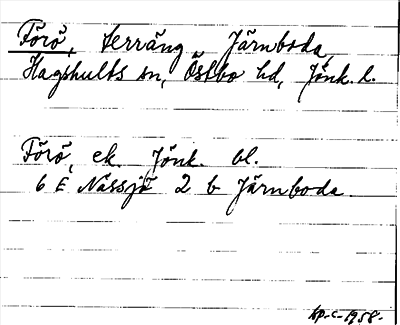 Förö, terräng Järnboda,
Hagshults sn, Östbo hd, Jönk. l.
Förö, ek. Jönk. bl.
6 E Nässjö 2 b Järnboda.
Kp.-c-1958.